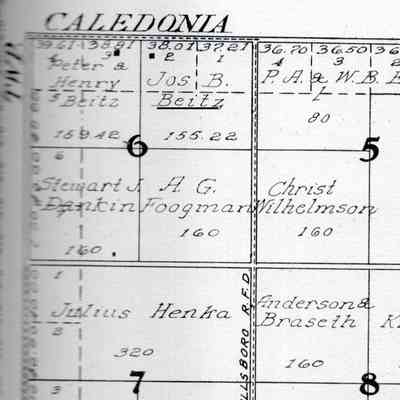 CALEDONIA
TWP.
39.61 38.91 38.01 37.21 36.70 36.50
3 2 1 4 3 2
Peter &
Henry
Beitz
159.42
Jos. B.
Beitz
155.22
6
P. A. & W. B.
80
5
6
Stewart J.
Dankin
160
A. G.
Foogman
160
Christ
Wilhelmson
160
1
Julius Henka
2
320
7
3
LLSBORO R.F.D.
Anderson &
Braseth
160
8